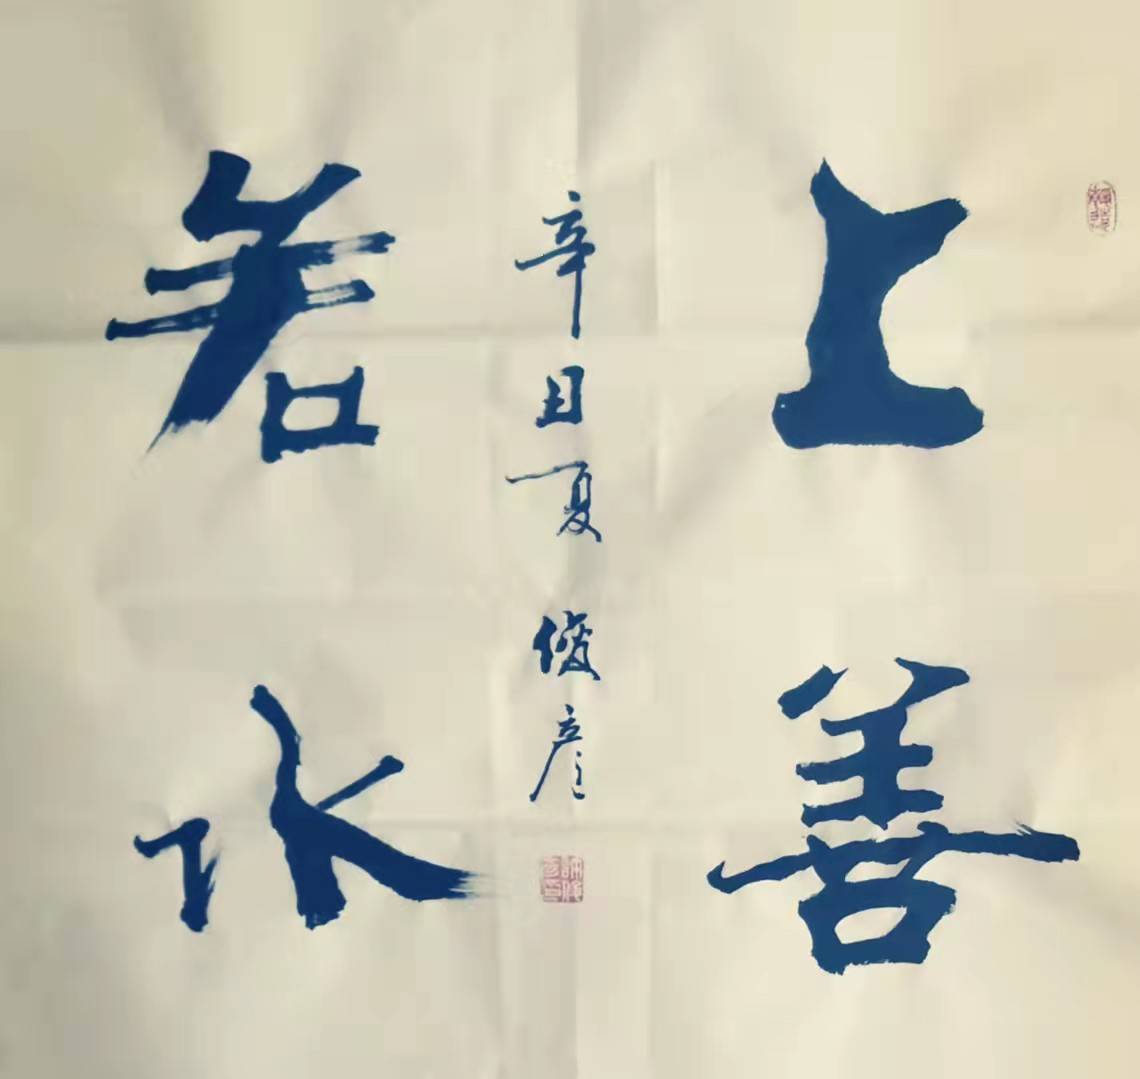 上善
若水
辛丑夏 俊彦